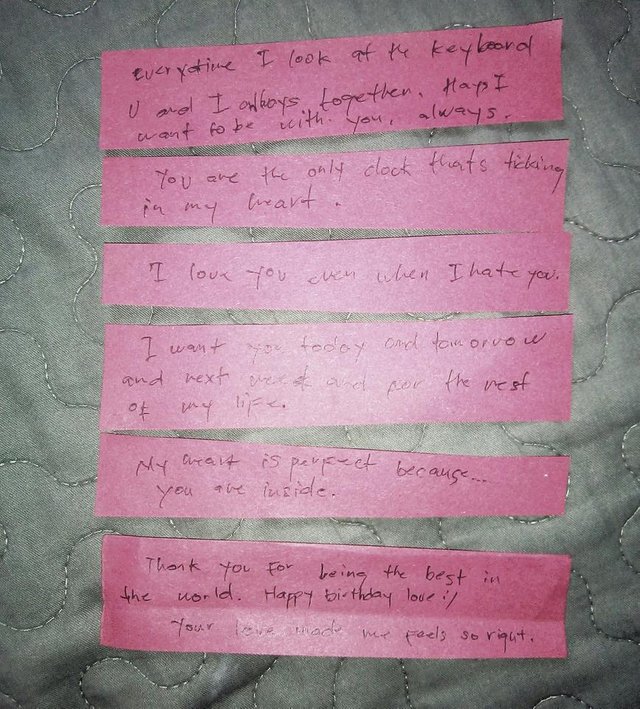 everytime I look at the keyboard
U and I always together. Hays I
want to be with you, always.
You are the only clock thats ticking
in my heart.
I love you even when I hate you.
I want you today and tomorrow
and next week and por the rest
of my life.
My heart is perpect because...
you are inside.
Thank you for being the best in
the world. Happy birthday love :)
Your love made me feels so right.